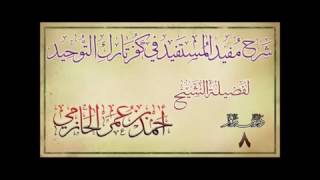 شرح مفيد المستفيد في كفر تارك التوحيد
لفضيلة الشيخ
أحمد بن عمر الحازمي
٨